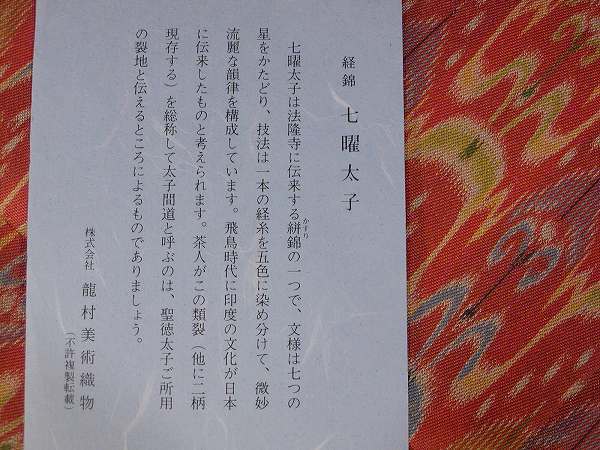 経錦 七曜太子
七曜太子は法隆寺に伝来する絣錦の一つで、文様は七つの
かすり
星をかたどり、技法は一本の経糸を五色に染め分けて、微妙
流麗な韻律を構成しています。飛鳥時代に印度の文化が日本
に伝来したものと考えられます。茶人がこの類裂（他に二柄
現存する）を総称して太子間道と呼ぶのは、聖徳太子ご所用
の裂地と伝えるところによるものでありましょう。
株式会社 龍村美術織物
（不許複製転載）